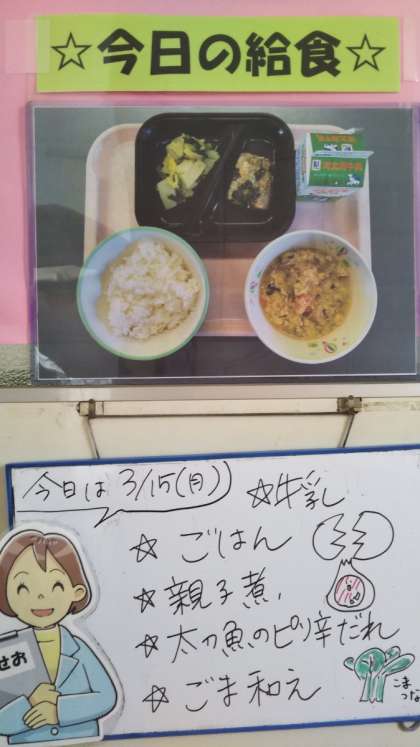 ☆今日の給食☆
今日は 3/15(月)
☆牛乳
☆ごはん
☆親子煮
☆太刀魚のピリ辛だれ
☆ごま和え
こま
つな
せお